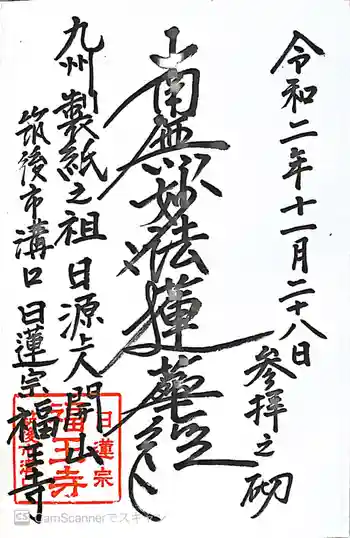 令和二年十一月二十八日
参拝之砌
南無妙法蓮華経
九州製紙之祖日源上人開山
筑後市溝口日蓮宗福王寺
日蓮宗
福王寺
筑後市溝口
CS CamScannerでスキャン